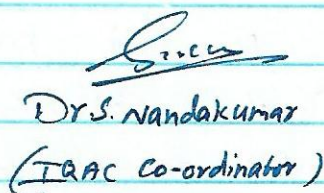 Dr.S. Nandakumar
(IQAC Co-ordinator)